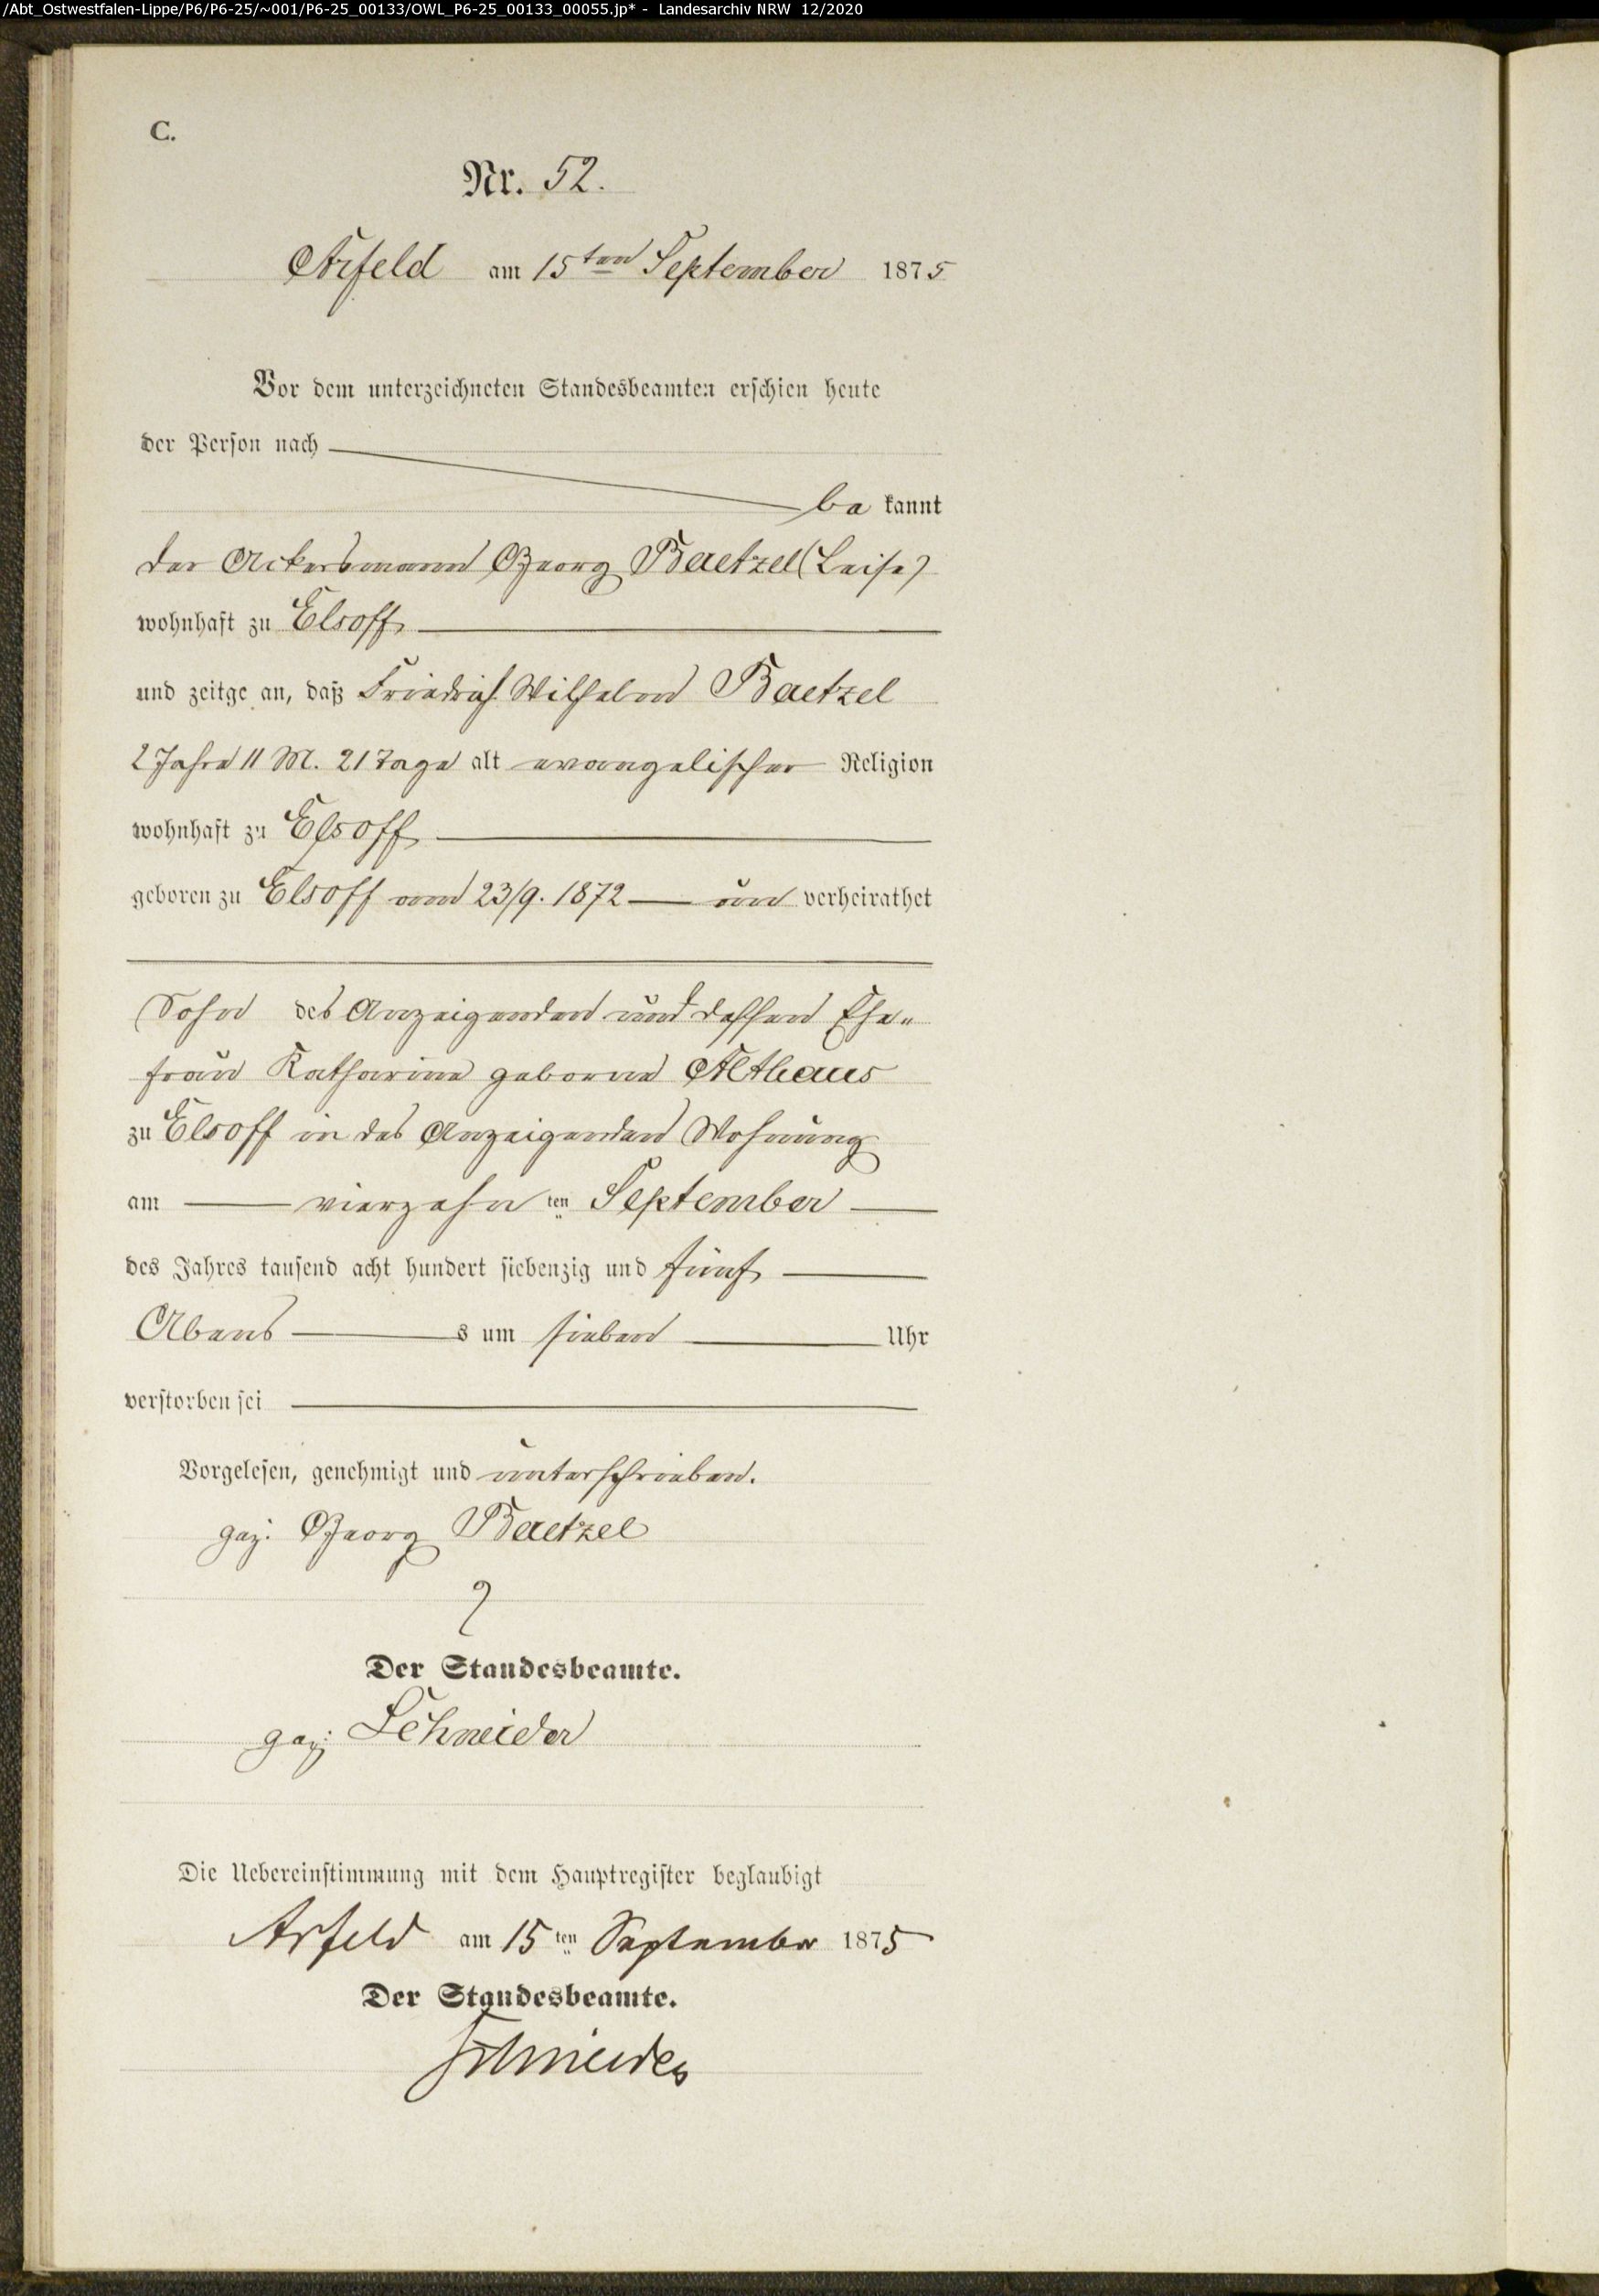 /Abt_Ostwestfalen-Lippe/P6/P6-25/~001/P6-25_00133/OWL_P6-25_00133_00055.jp* - Landesarchiv NRW 12/2020
C.
Nr. 52.
Arfeld am 15ten September 1875
Vor dem unterzeichneten Standesbeamten erschien heute
der Person nach
be kannt
der Ackersmann Georg Baetzel (Leise)
wohnhaft zu Elsoff
und zeitge an, daß Friedrich Wilhelm Baetzel
2 Jahre 11 M. 21 Tage alt evangelischer Religion
wohnhaft zu Elsoff
geboren zu Elsoff am 23/9. 1872 un verheirathet
Sohn des Anzeigenden und dessen Ehe„
frau Katharine geborne Althaus
zu Elsoff in des Anzeigenden Wohnung
am vierzehn ten September
des Jahres tausend acht hundert siebenzig und fünf
Abens s um sieben Uhr
verstorben sei
Vorgelesen, genehmigt und unterschrieben.
gez: Georg Baetzel
Der Standesbeamte.
gez: Schneider
Die Uebereinstimmung mit dem Hauptregister beglaubigt
Arfeld am 15ten September 1875
Der Standesbeamte.
Schneider